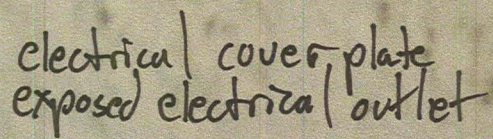 electrical cover plate
exposed electrical outlet